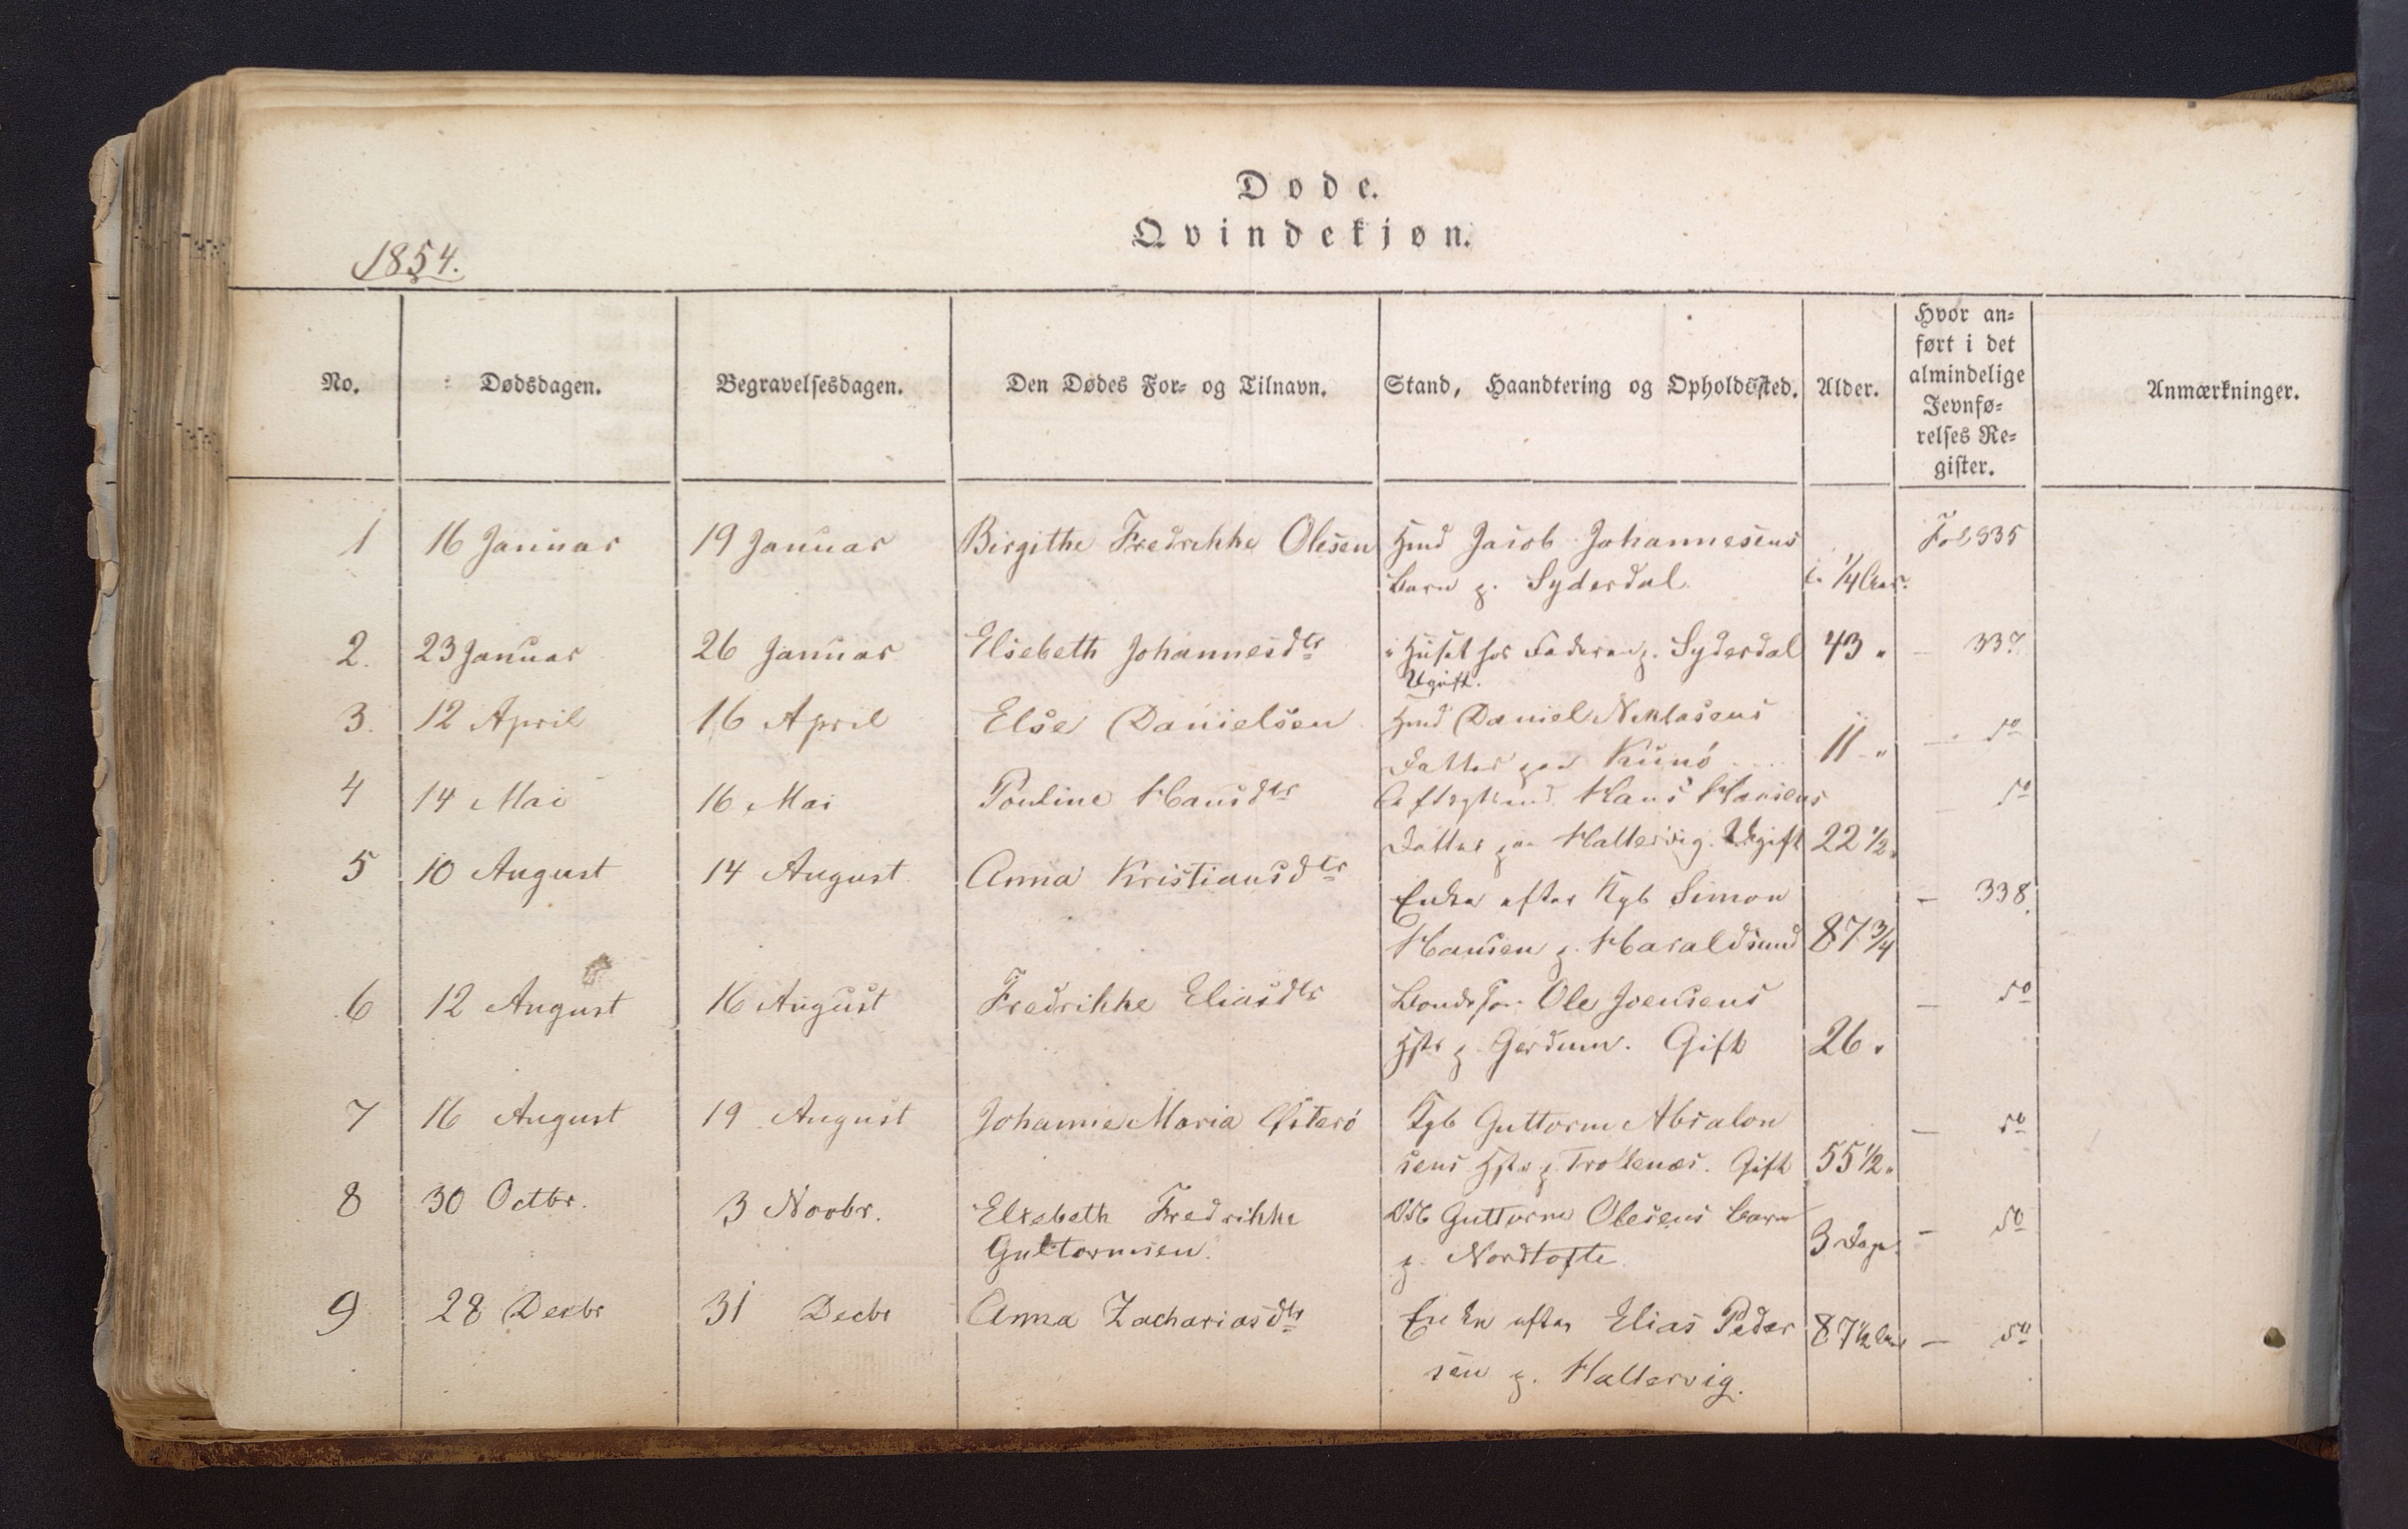 Døde.
Qvindekjøn.
1854.
No. Dødsdagen. Begravelsesdagen. Den Dødes For- og Tilnavn. Stand, Haandtering og Opholdssted. Alder. Hvor an-
ført i det
almindelige
Jevnfø-
relses Re-
gister. Anmærkninger.
1 16 Januar 19 Januar Birgithe Fredrikke Olesen Hmd Jacob Johannesens Fol 335
Barn p. Syderdal 1/4 Aar.
2. 23 Januar 26 Januar Elsebeth Johannesdtr i Huset hos Faderen p. Syderdal 43 " — 337
Ugift.
3. 12 April 16 April Else Danielsen Hmd Daniel Niklasens
Datter paa Kunö 11 " — do
4 14 Mai 16 Mai Pouline Hansdtr Aftægtsmd Hans Hansens — do
Datter paa Hattervig. Ugift 22 1/2 "
5 10 August 14 August Anna Kristiansdtr
Enke efter Kgb Simon — 338
Hansen p. Haraldsund 87 3/4
6 12 August 16 August Fredrikke Eliasdtr Ole Joensens — do
Hstr p. Gerdum. Gift 26 "
7 16 August 19 August Johanne Maria Österö Kgb Guttorm Absalon — do
sens Hstr p. Trollenæs. Gift 55 1/2 "
8 30 Octbr. 3 Novbr. Elsebeth Fredrikke Guttorm Olesens Barn — do
Guttormsen. p. Nordtofte. 3 Dage
9 28 Decbr 31 Decbr Anna Zachariasdtr Enke efter Elias Peder 87 1/2 Aar — do
sen p. Hattervig.